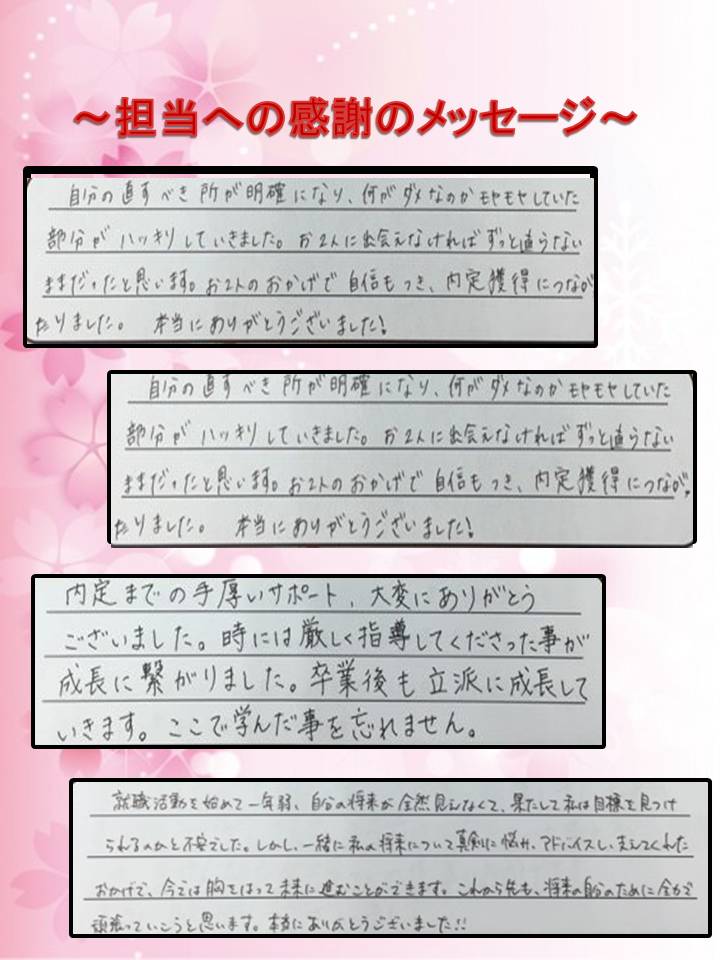 ～担当への感謝のメッセージ～
自分の直すべき所が明確になり、何がダメなのかモヤモヤしていた
部分がハッキリしていきました。お2人に出会えなければずっと直らない
ままだったと思います。お2人のおかげで自信もつき、内定獲得につなが
たりました。 本当にありがとうございました!
自分の直すべき所が明確になり、何がダメなのかモヤモヤしていた
部分がハッキリしていきました。お2人に出会えなければずっと直らない
ままだったと思います。お2人のおかげで自信もつき、内定獲得につなが
たりました。 本当にありがとうございました!
内定までの手厚いサポート、大変にありがとう
ございました。時には厳しく指導してくださった事が
成長に繋がりました。卒業後も立派に成長して
いきます。ここで学んだ事を忘れません。
就職活動を始めて一年弱、自分の将来が全然見えなくて、果たして私は目標を見つけ
られるのかと不安でした。しかし、一緒に私の将来について真剣に悩み、アドバイスし、支えてくれた
おかげで、今では胸をはって未来に進むことができます。これから先も、将来の自分のために全力で
頑張っていこうと思います。本当にありがとうございました!!